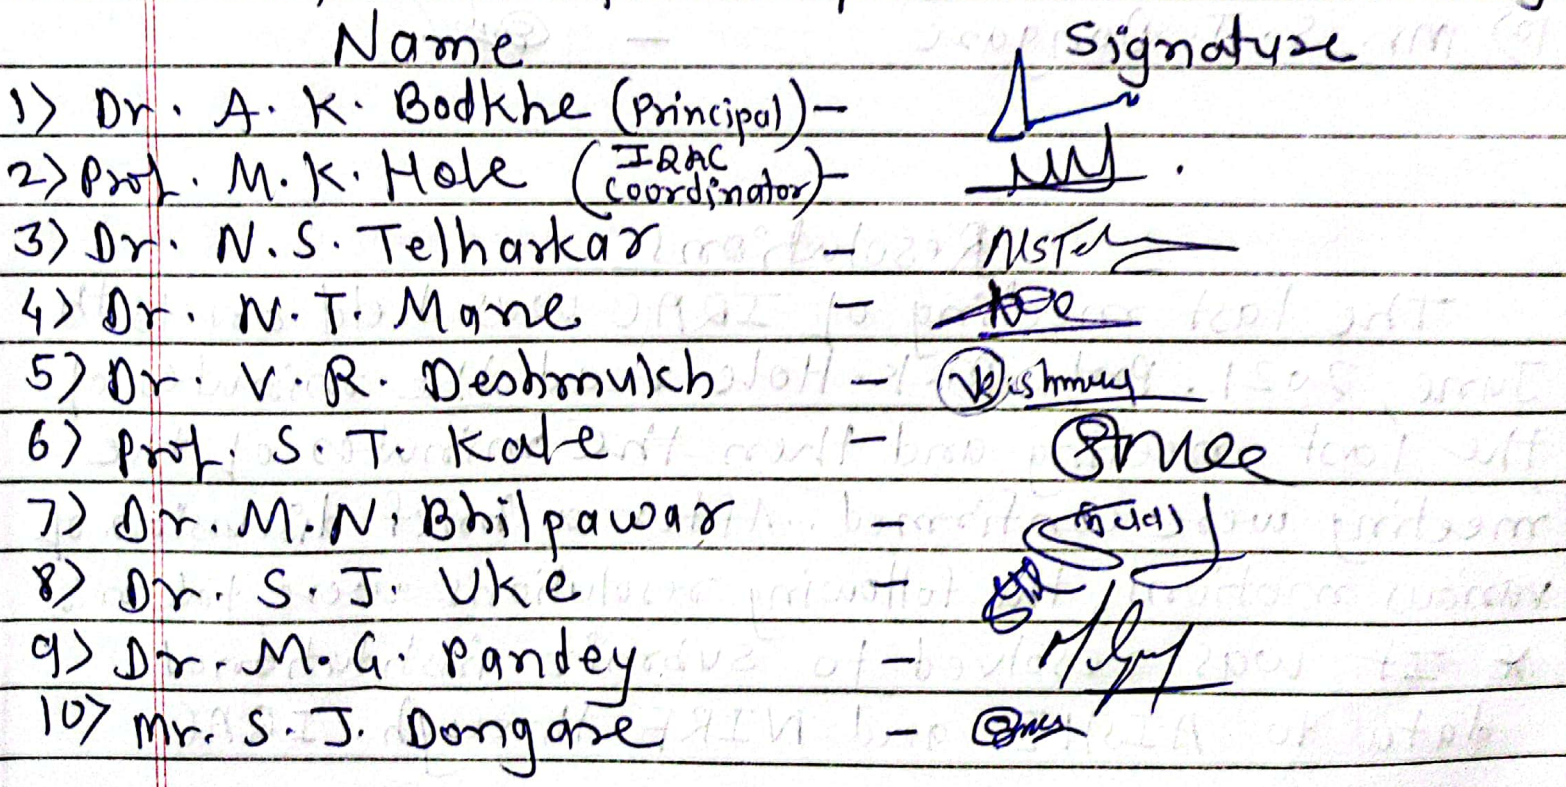 Name Signature
1) Dr. A. K. Bodkhe (Principal) -
2) Prof. M. K. Hole (IQAC Coordinator) -
3) Dr. N. S. Telharkar - NSTel
4) Dr. N. T. Mane -
5) Dr. V. R. Deshmukh - VDeshmukh
6) Prof. S. T. Kale -
7) Dr. M. N. Bhilpawar -
8) Dr. S. J. Uke -
9) Dr. M. G. Pandey -
10) Mr. S. J. Dongare -